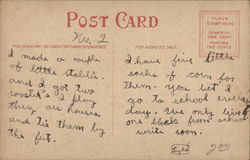 POST CARD
No. 2
PLACE
STAMP HERE
DOMESTIC
ONE CENT
FOREIGN
TWO CENTS
THIS SPACE MAY BE USED FOR CORRESPONDENCE
FOR ADDRESS ONLY
I made a couple
of little stable's.
and I got two
rooster's I play
they are horses
and tie them by
the feet.
I have five little
sacks of corn for
them. you bet I
go to school every
day. We only live
one block from school
write soon.
Lyle